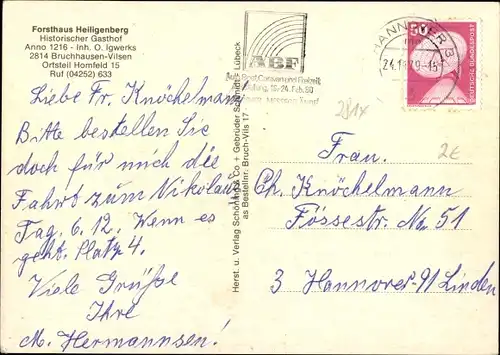 Forsthaus Heiligenberg
Historischer Gasthof
Anno 1216 - Inh. O. Igwerks
2814 Bruchhausen-Vilsen
Ortsteil Homfeld 15
Ruf (04252) 633
Liebe Fr. Knöchelmann!
Bitte bestellen Sie
doch für mich die
Fahrt zum Nikolaus
Tag. 6.12. Wenn es
geht. Platz 4.
Viele Grüße
Ihre
M. Hermannsen!
Herst. u. Verlag Schöning & Co + Gebrüder Schmidt, Lübeck
as Bestellnr. Bruch-Vils 17
ABF
Boot, Caravan und Freizeit
16-24. Feb. 80
HANNOVER
24.11.79-15
50
DEUTSCHE BUNDESPOST
2814
2€
Frau.
Ch. Knöchelmann
Fössestr. No. 51
3 Hannover-91 Linden